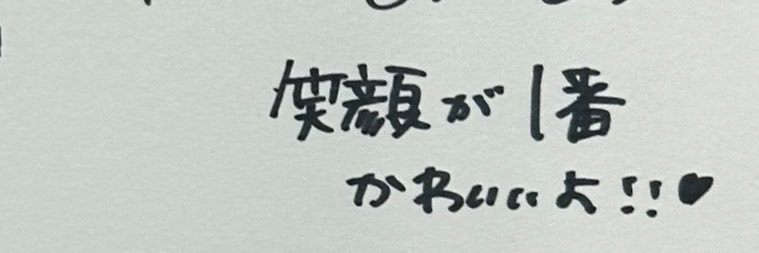 笑顔が1番
かわいいよ!!♥